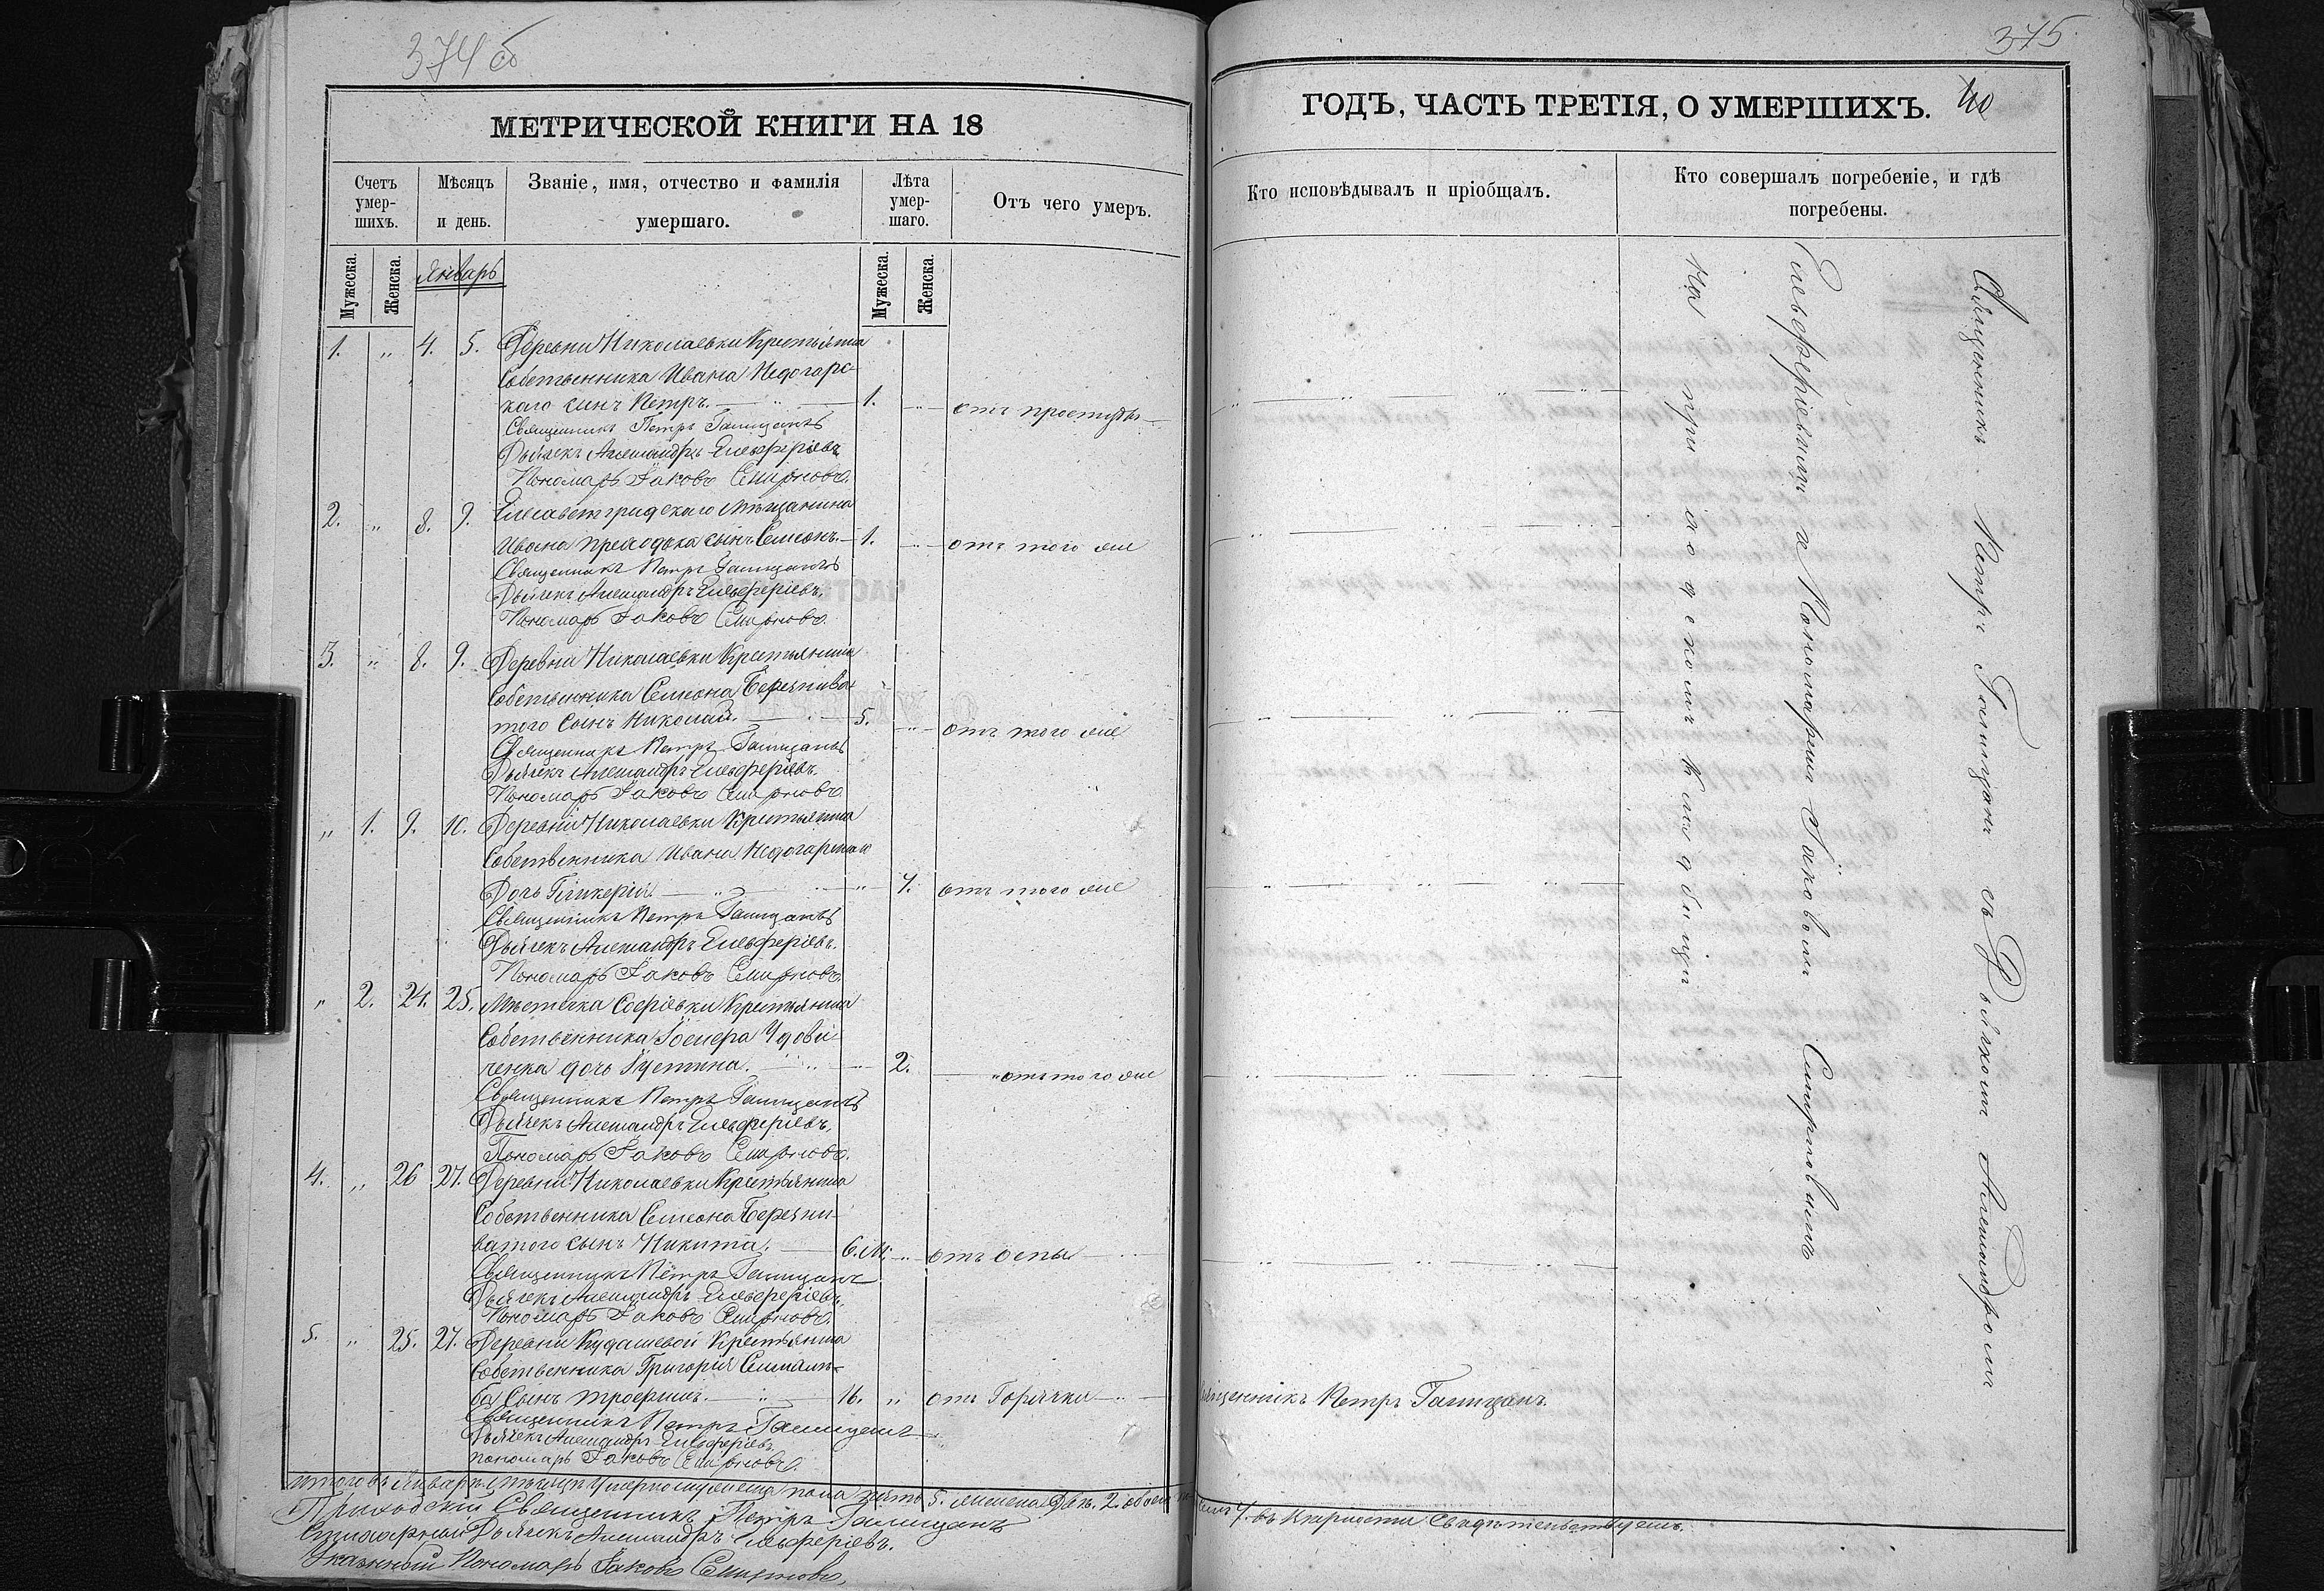 374 об
МЕТРИЧЕСКОЙ КНИГИ НА 18
Счетъ умер-шихъ.
Мѣсяцъ и день.
Званіе, имя, отчество и фамилія умершаго.
Лѣта умер-шаго.
Отъ чего умеръ.
Мужеска.
Женска.
Январь
Мужеска.
Женска.
1. „ 4. 5. Деревни Николаевки Крестьянина
Собственника Ивана Недогарс-
каго сынъ Петръ. 1. отъ простуды
Священникъ Петръ Галицанъ
Дьячекъ Александръ Елевферіевъ
Пономарь Іаковъ Смирновъ.
2. „ 8. 9. Елисаветградскаго Мѣщанина
Ивана сынъ Симеонъ. 1. отъ того же
Священникъ Петръ Галицанъ
Дьячекъ Александръ Елевферіевъ.
Пономарь Іаковъ Смирновъ.
3. „ 8. 9. Деревни Николаевки Крестьянина
Собственника Симеона Берегнива-
того Сынъ Николай. 5. отъ того же
Священникъ Петръ Галицанъ
Дьячекъ Александръ Елевферіевъ.
Пономарь Іаковъ Смирновъ
„ 1. 9. 10. Деревни Николаевки Крестьянина
Собственника Ивана Недогарскаго
Дочь Гликерія. „ 7. отъ того же
Священникъ Петръ Галицанъ
Дьячекъ Александръ Елевферіевъ.
Пономарь Іаковъ Смирновъ
„ 2. 24. 25. Мѣстечка Софіевки Крестьянина
Собственника Удови-
ченка дочь Іустина. 2. отъ того же
Священникъ Петръ Галицанъ
Дьячекъ Александръ Елевферіевъ,
Пономарь Іаковъ Смирновъ.
4. „ 26 27. Деревни Николаевки Крестьянина
Собственника Симеона Берегни-
ватого сынъ Никита. 6. м. отъ оспы
Священникъ Петръ Галицанъ
Дьячекъ Александръ Елевферіевъ,
Пономарь Іаковъ Смирновъ.
5. „ 25. 27. Деревни Кудашевой Крестьянина
Собственника Григорія
ба Сынъ Трофимъ. 16. „ отъ Горячки
Священникъ Петръ Галицанъ
Дьячекъ Александръ Елевферіевъ
пономарь Іаковъ Смирновъ.
Итого въ Январѣ мѣсяцѣ умерло мужеска пола пять 5. женска двѣ. 2. обоего
Приходскій Священникъ Петръ Галицанъ
Стихарный Дьячекъ Александръ Елевферіевъ.
Указный Пономарь Іаковъ Смирновъ,
375
ГОДЪ, ЧАСТЬ ТРЕТІЯ, О УМЕРШИХЪ.
40
Кто исповѣдывалъ и пріобщалъ.
Кто совершалъ погребеніе, и гдѣ погребены.
Священникъ Петръ Галицанъ съ Дьячкомъ Александромъ
Елевферіевымъ и Пономаремъ Іаковомъ Смирновымъ
На приходскомъ кладбищѣ
Священникъ Петръ Галицанъ.
7. въ вѣрности свидѣтельствуемъ.